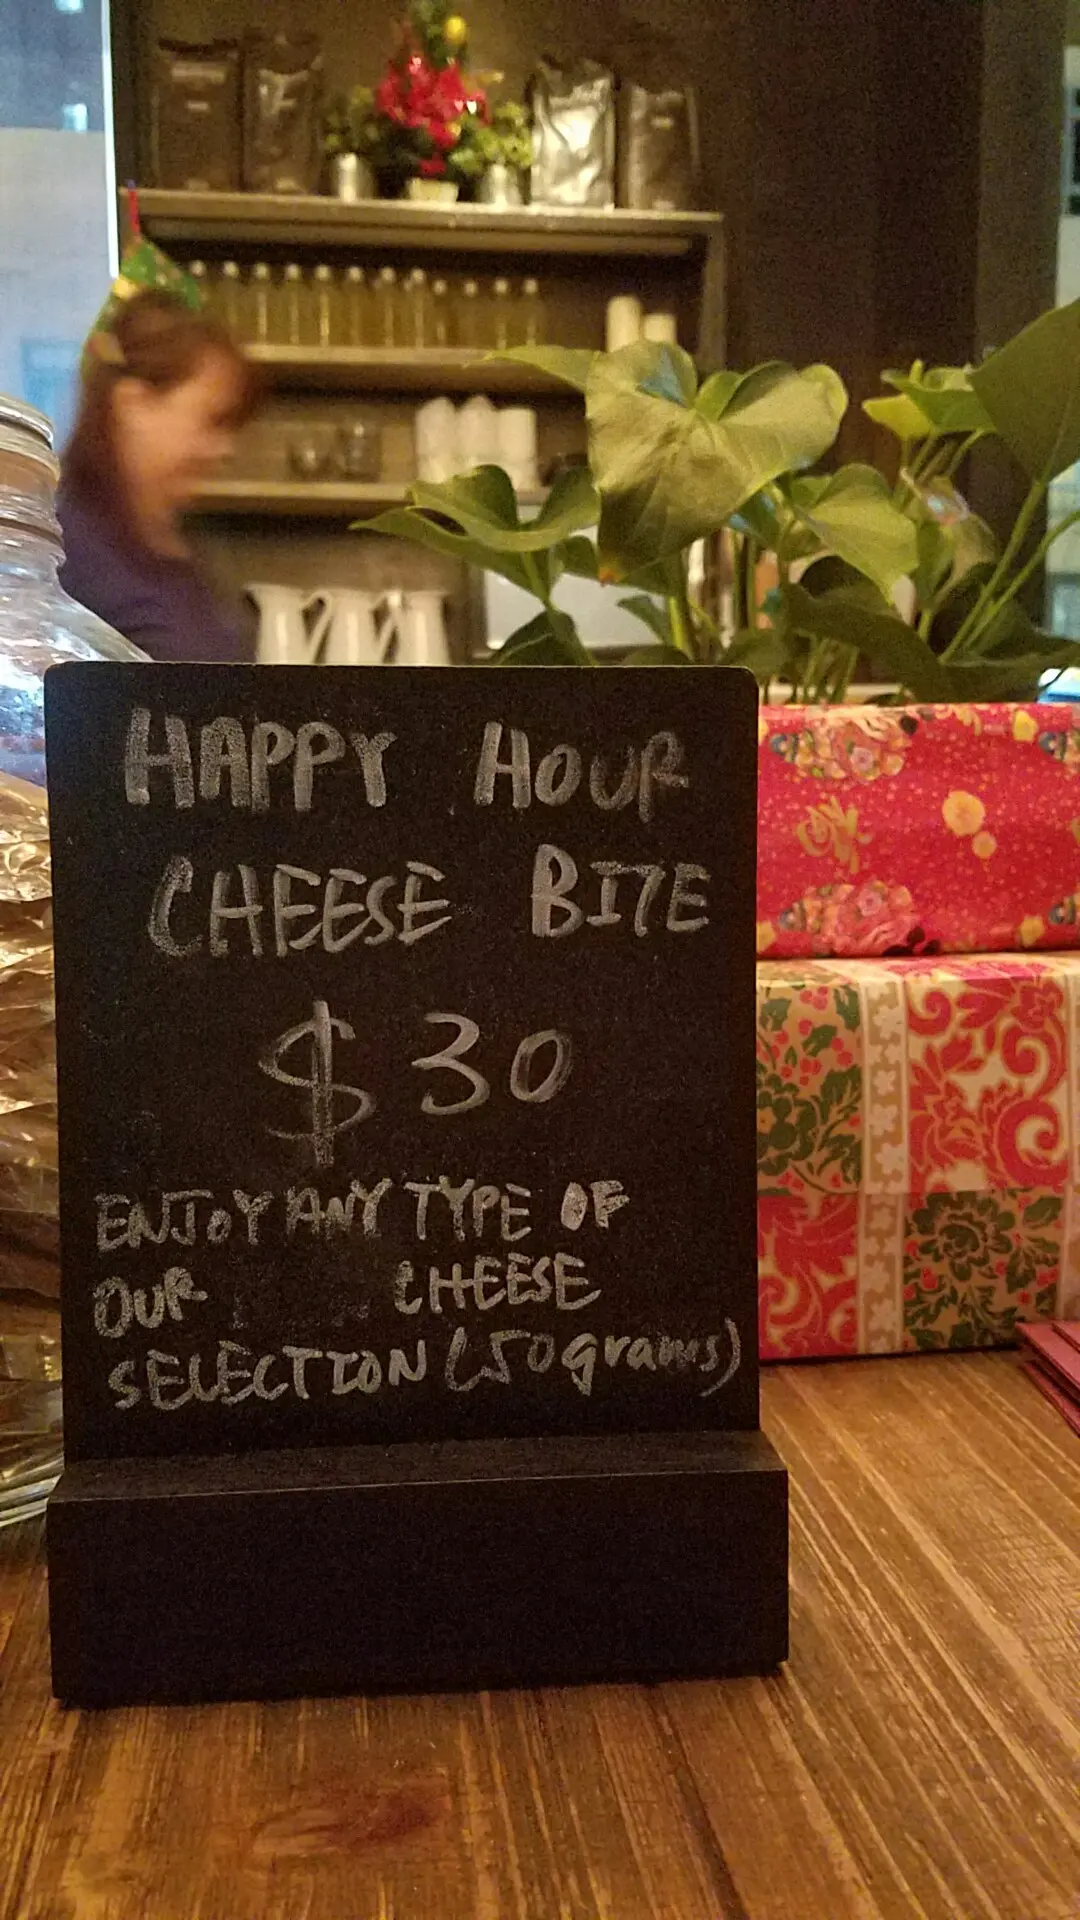 HAPPY HOUR
CHEESE BITE
$30
ENJOY ANY TYPE OF
OUR CHEESE
SELECTION (50grams)